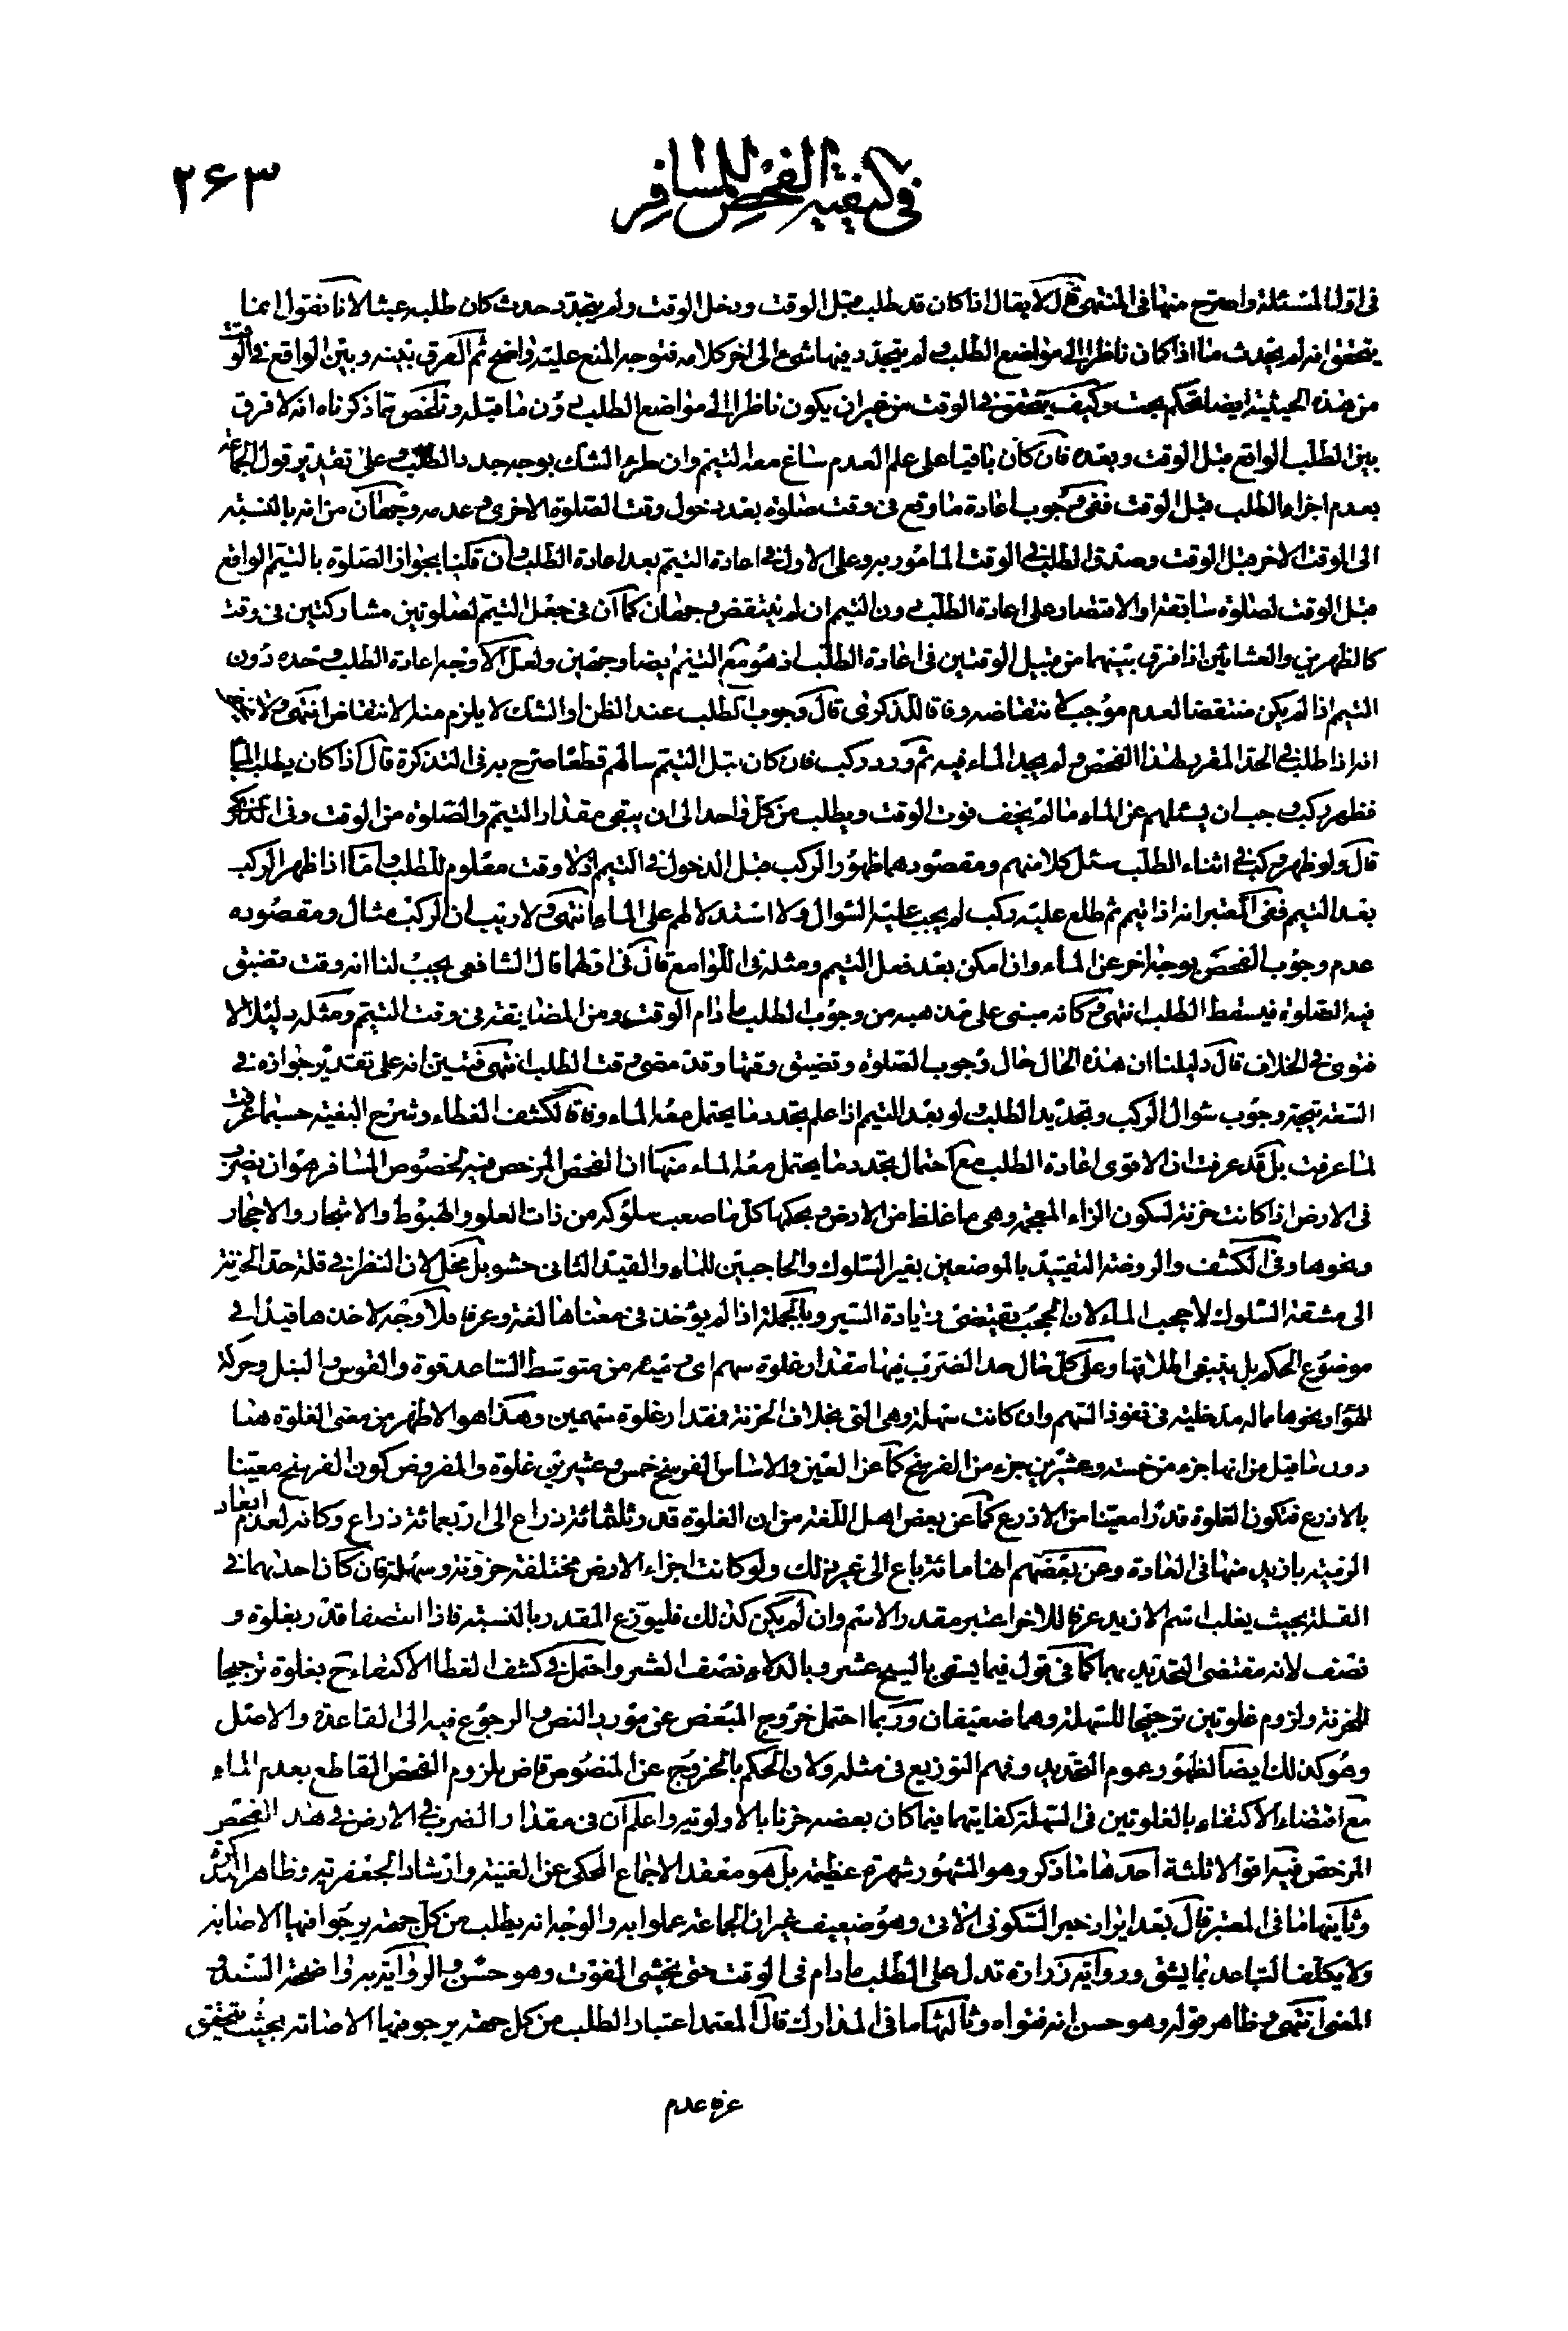 في كيفية الفحص للمسافر
٢۶٣
في اول المسئلة واصرح منها في المنتهى قال لا يقال اذا كان قد طلب قبل الوقت ودخل الوقت ولم يتجدد حدث كان طلبه عبثا لانا نقول انما
يتحقق انه لم يحدث ماء اذا كان ناظرا الى مواضع الطلب ولم يتجدد فيها شيء الى اخر كلامه فتوجه المنع عليه واضح ثم الفرق بينه وبين الواقع في الوقت
من هذه الحيثية ايضا تحكم بحت وكيف يتحقق في الوقت من غير ان يكون ناظرا الى مواضع الطلب دون ما قبله وتلخص مما ذكرناه انه لا فرق
بين الطلب الواقع قبل الوقت وبعده فان كان باقيا على علم العدم ساغ معه التيمم وان طرء الشك بوجه جدد الطلب على تقدير قول الجماعة
بعدم اجزاء الطلب قبل الوقت ففي وجوب اعادة ما وقع في وقت صلوة بعد دخول وقت الصلوة الاخرى وعدمه وجهان من انه بالنسبة
الى الوقت الاخر قبل الوقت وصدق الطلب في الوقت المامور به وعلى الاول في اعادة التيمم بعد اعادة الطلب ان قلنا بجواز الصلوة بالتيمم الواقع
قبل الوقت لصلوة سابقة او الاقتصار على اعادة الطلب دون التيمم ان لم ينتقض وجهان كما ان في جعل التيمم لصلوتين مشاركتين في وقت
كالظهرين والعشائين اذا فرق بينهما من قبيل الوقتين في اعادة الطلب اذ هو مع التيمم ايضا وجهين ولعل الاوجه اعادة الطلب وحده دون
التيمم اذا لم يكن منتقضا لعدم موجب لانتقاضه وفاقا للذكرى قال وجوب الطلب عند الظن او الشك لا يلزم منه الانتقاض انتهى
انه اذا طلب في الحد المقرر لهذا الفحص ولم يجد الماء فيه ثم ورد ركب فان كان قبل التيمم سالهم قطعا صرح به في التذكرة قال اذا كان يطلب الماء
فظهر ركب وجب ان يسئلهم عن الماء ما لم يخف فوت الوقت ويطلب من كل واحد الى ان يبقى مقدار التيمم والصلوة من الوقت وفي الذكرى
قال ولو ظهر ركب في اثناء الطلب سئل كلا منهم ومقصودهما ظهور الركب قبل الدخول في التيمم اذ لا وقت معلوم للطلب واما اذا ظهر الركب
بعد التيمم ففي المعتبر انه اذا تيمم ثم طلع عليه ركب لم يجب عليه السؤال ولا استدلالهم على الماء انتهى ولا ريب ان الركب مثال ومقصوده
عدم وجوب الفحص بوجه اخر عن الماء وان امكن بعد فعل التيمم ومثله في اللوامع قال في اولهما قال الشافعي يجب لنا انه وقت تضيق
فيه الصلوة فيسقط الطلب انتهى وكانه مبنى على مذهبه من وجوب الطلب ما دام الوقت ومن المضايقة في وقت التيمم ومثله دليلا لا
فتوى في الخلاف قال دليلنا ان هذه الحال حال وجوب الصلوة وتضيق وقتها وقد مضى وقت الطلب انتهى فتبين انه على تقدير جوازه في
السعة يتجه وجوب سؤال الركب وتجديد الطلب ولو بعد التيمم اذا علم بتجدد ما يحتمل معه الماء وفاقا لكشف الغطاء وشرح البغية حسبما عرفت
لما عرفت بل قد عرفت ان الاقوى اعادة الطلب مع احتمال تجدد ما يحتمل معه الماء منها ان الفحص المرخص فيه لخصوص المسافر هو ان يضرب
في الارض اذا كانت حزنة لسكون الزاء المعجمة وهي ما غلظ من الارض وبحكمها كل ما صعب سلوكه من ذات العلو والهبوط والاشجار والاحجار
ونحوها وفي الكشف والروضة التقييد بالموضعين بغير السلوك والحاجبين للماء والقيد الثاني حشو بل مخل لان النظر في قلة حد الحزنة
الى مشقة السلوك لا حجب الماء لان الحجب يقتضى زيادة السير وبالجملة اذا لم يؤخذ في معناها لغة وعرفا فلا وجه لاخذها قيدا في
موضوع الحكم بل ينبغي اطلاقها وعلى كل حال حد الضرب فيها مقدار غلوة سهم اى رميه من متوسط الساعد قوة والقوس والنبل وحركة
الهواء ونحوها مما له مدخلية في نفوذ السهم وان كانت سهلة وهي التي بخلاف الحزنة فقدار غلوة سهمين وهكذا هو الاظهر من معنى الغلوة هنا
دون ما قيل من انها جزء من خمسة وعشرين جزء من الفرسخ كما عن العين والاساس الفرسخ خمس وعشرين غلوة والمفروض كون الفرسخ معينا
بالاذرع فتكون الغلوة قدرا معينا من الاذرع كما عن بعض اهل اللغة من ان الغلوة قدر ثلثمائة ذراع الى اربعمائة ذراع وكانه لعدم ابعاد
الرمية بازيد منها في العادة وعن بعضهم انها مائة باع الى غير ذلك ولو كانت اجزاء الارض مختلفة حزونة وسهلة فان كان احدهما في
القلة بحيث يغلب اسم الازيد عرفا للاخر اعتبر مقدر الاسم وان لم يكن كذلك فليوزع المقدر بالنسبة فاذا انتصفا قدر بغلوة و
نصف لانه مقتضى التحديد بهما كما في قول فيما يسقى بالسيح عشر وبالدلاء نصف العشر واحتمل في كشف الغطا الاكتفاء ح بغلوة ترجيحا
للحزنة ولزوم غلوتين ترجيحا للسهلة وهما ضعيفان وربما احتمل خروج المبعض عن مورد النص والرجوع فيه الى القاعدة والاصل
وهو كذلك ايضا لظهور عموم التحديد وفهم التوزيع في مثله ولان الحكم بالخروج عن المنصوص قاض بلزوم الفحص القاطع بعدم الماء
مع اقتضاء الاكتفاء بالغلوتين في السهلة كفايتهما فيما كان بعضه حزنا بالاولوية واعلم ان في مقدار الضرب في الارض في هذا الفحص
المرخص فيه اقوالا ثلثة احدها ما ذكر وهو المشهور شهرة عظيمة بل هو معقد الاجماع المحكى عن الغنية وارشاد الجعفرية وظاهر التذكرة
وثانيها ما في المعتبر قال بعد ايراد خبر السكوني الاتى وهو ضعيف غير ان الجماعة عملوا به والوجه انه يطلب من كل جهة يرجو فيها الاصابة
ولا يكلف التباعد بما يشق ورواية زرارة تدل على الطلب ما دام في الوقت حتى يخشى الفوت وهو حسن والرواية به واضحة السند و
المعنى انتهى وظاهر قوله وهو حسن انه فتواه وثالثها ما في المدارك قال المعتمد اعتبار الطلب من كل جهة يرجو فيها الاصابة بحيث يتحقق
عرفا عدم